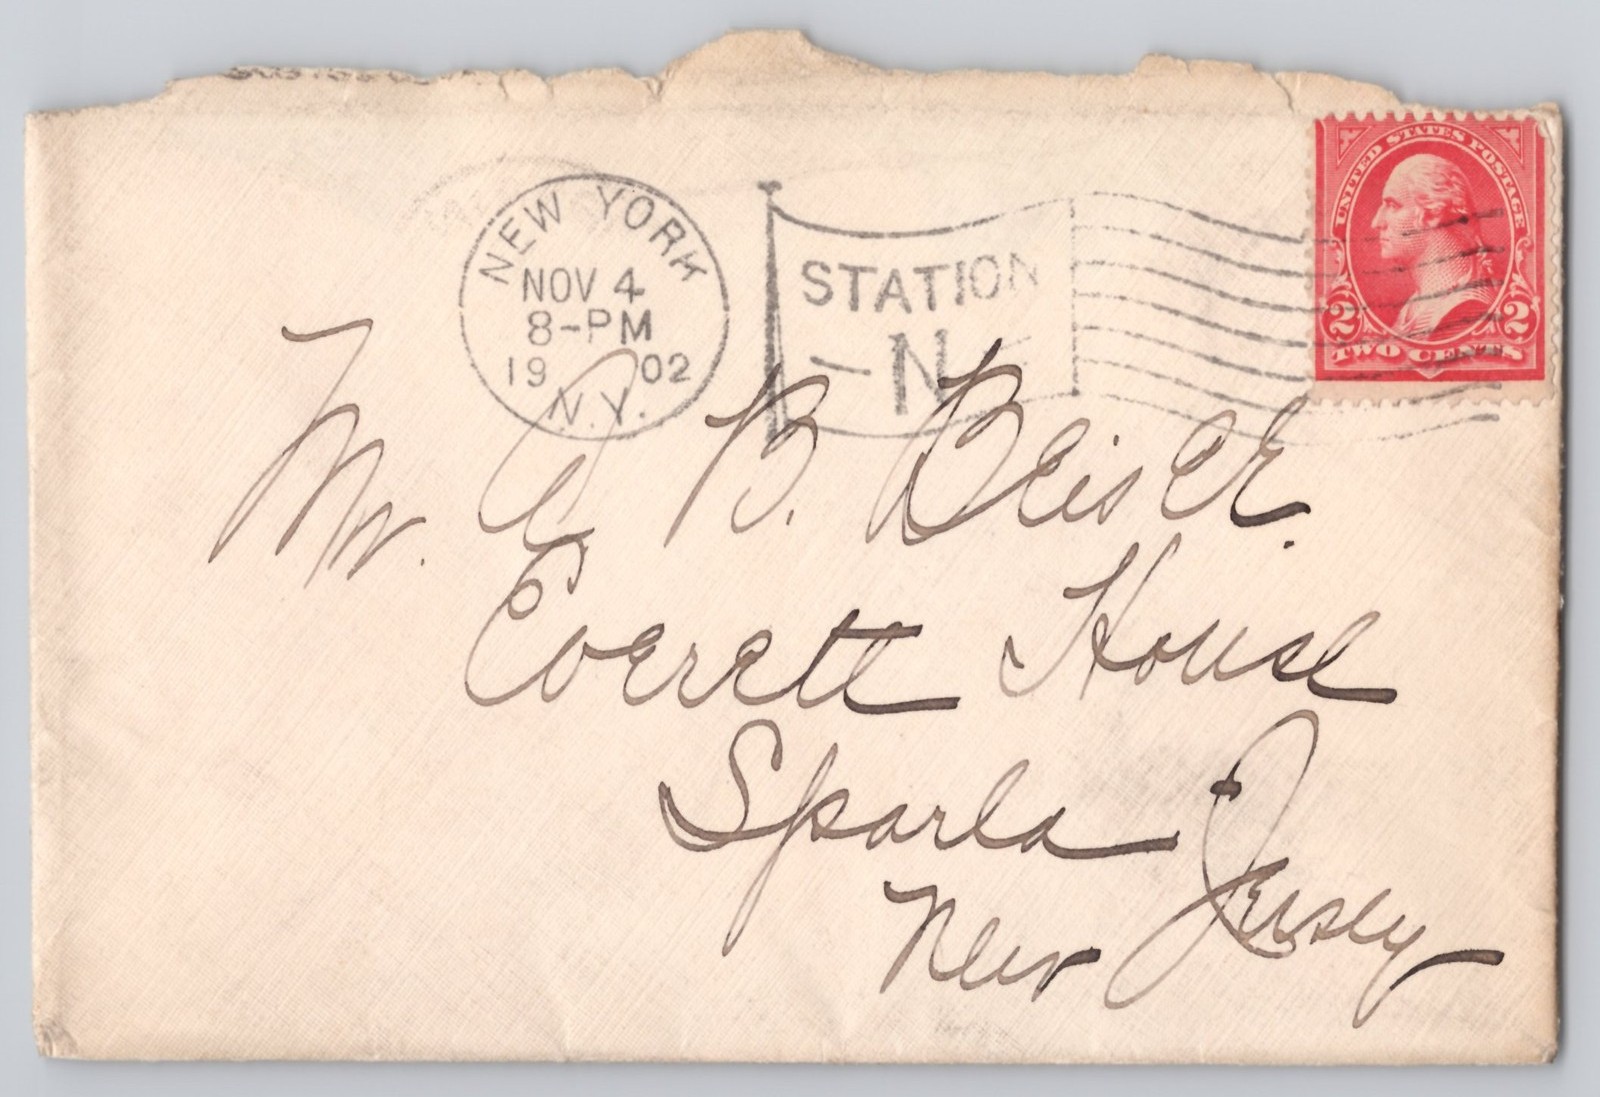 NEW YORK
NOV 4
8-PM
19 02
N.Y.
STATION
- N -
UNITED STATES POSTAGE
2 2
TWO CENTS
Mr. B.
Everett House
Sparta
New Jersey